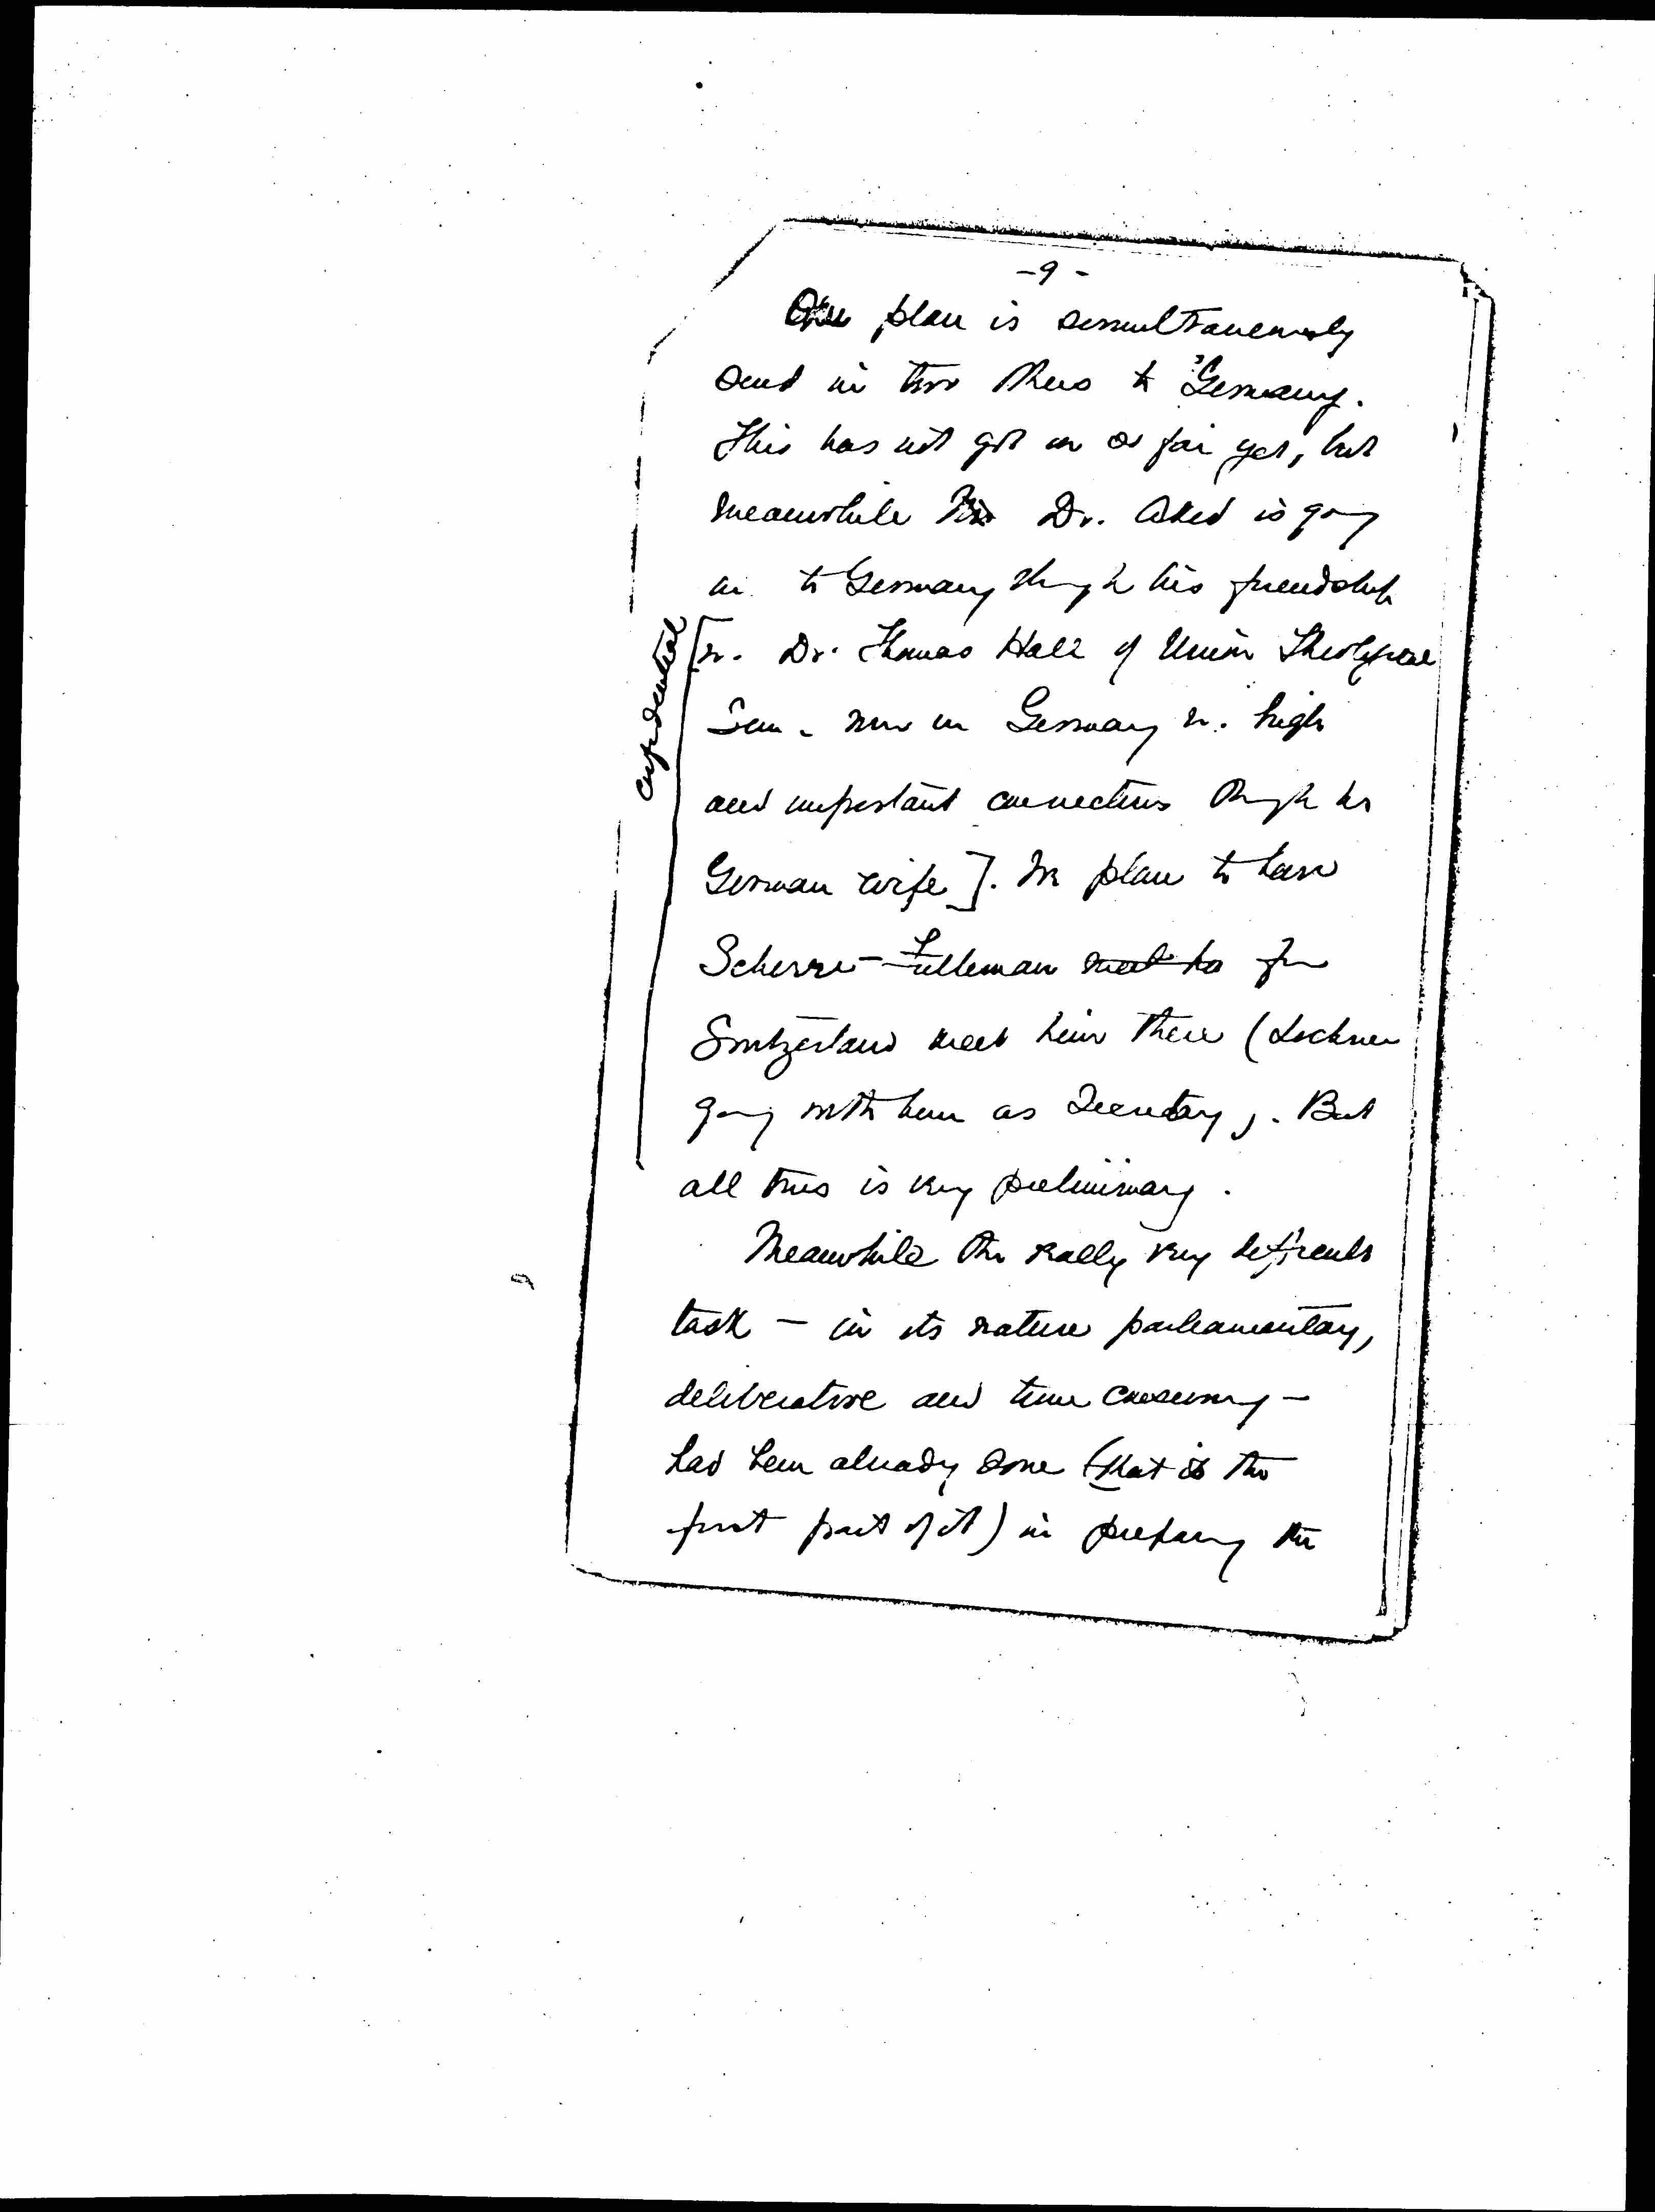 -9-
One plan is simultaneously
send in two others to Germany.
This has not got on so far yet, but
meanwhile Dr. Aked is going
in to Germany through his friendship
[w. Dr. Thomas Hall of Union Theological
Sem. now in Germany w. high
and important connections through his
German wife]. We plan to have
Scherrer-Fülleman meet him from
Switzerland meet him there (Lochner
going with him as Secretary). But
all this is very preliminary.
Meanwhile the really very difficult
task — in its nature parliamentary,
deliberative and time consuming —
has been already done (that is the
first part of it) in preparing the
confidential